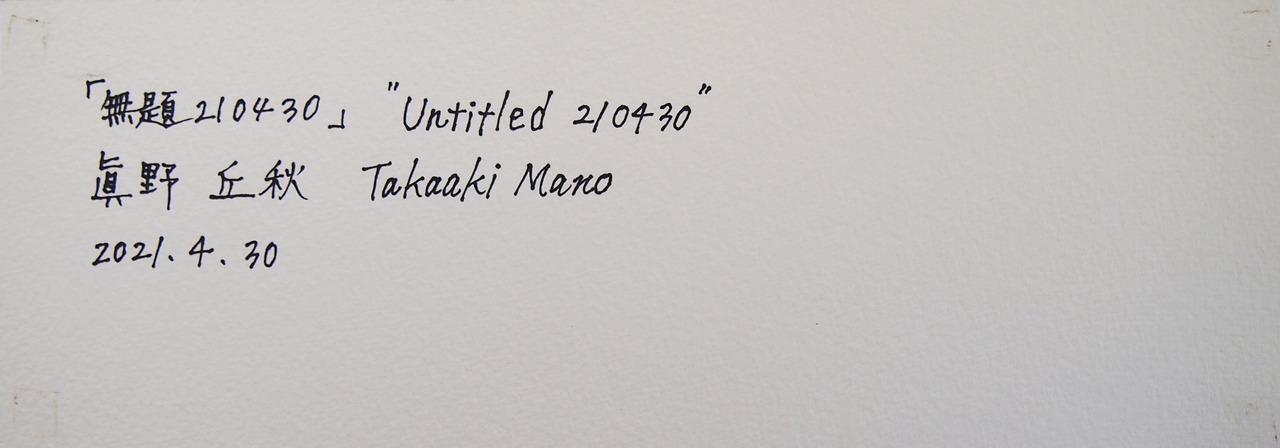 「無題210430」 "Untitled 210430"
眞野 丘秋 Takaaki Mano
2021.4.30